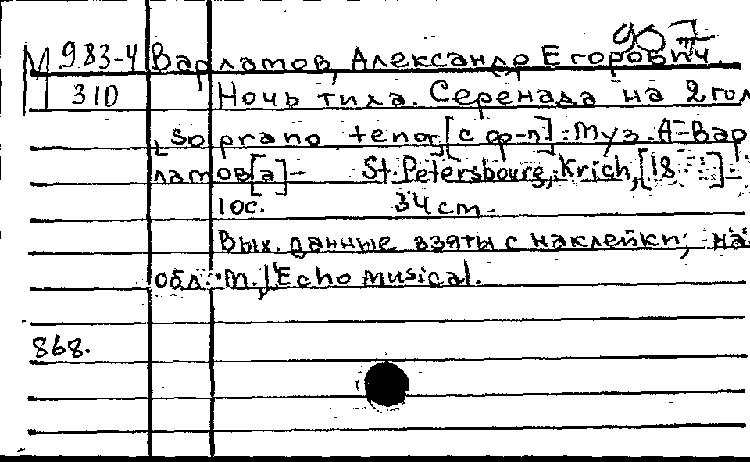 907
М 983-4 Варламов, Александр Егорович.
310 Ночь тиха. Серенада на 2 гол
[soprano tenor, [с ф-п]: Муз. А. Вар
ламов[а] - St. Petersbourg, Krich, [18 ]-
10с. 34 cm.
Вых. данные взяты с наклейки; на
обл.: М., l'Echo musical.
868.